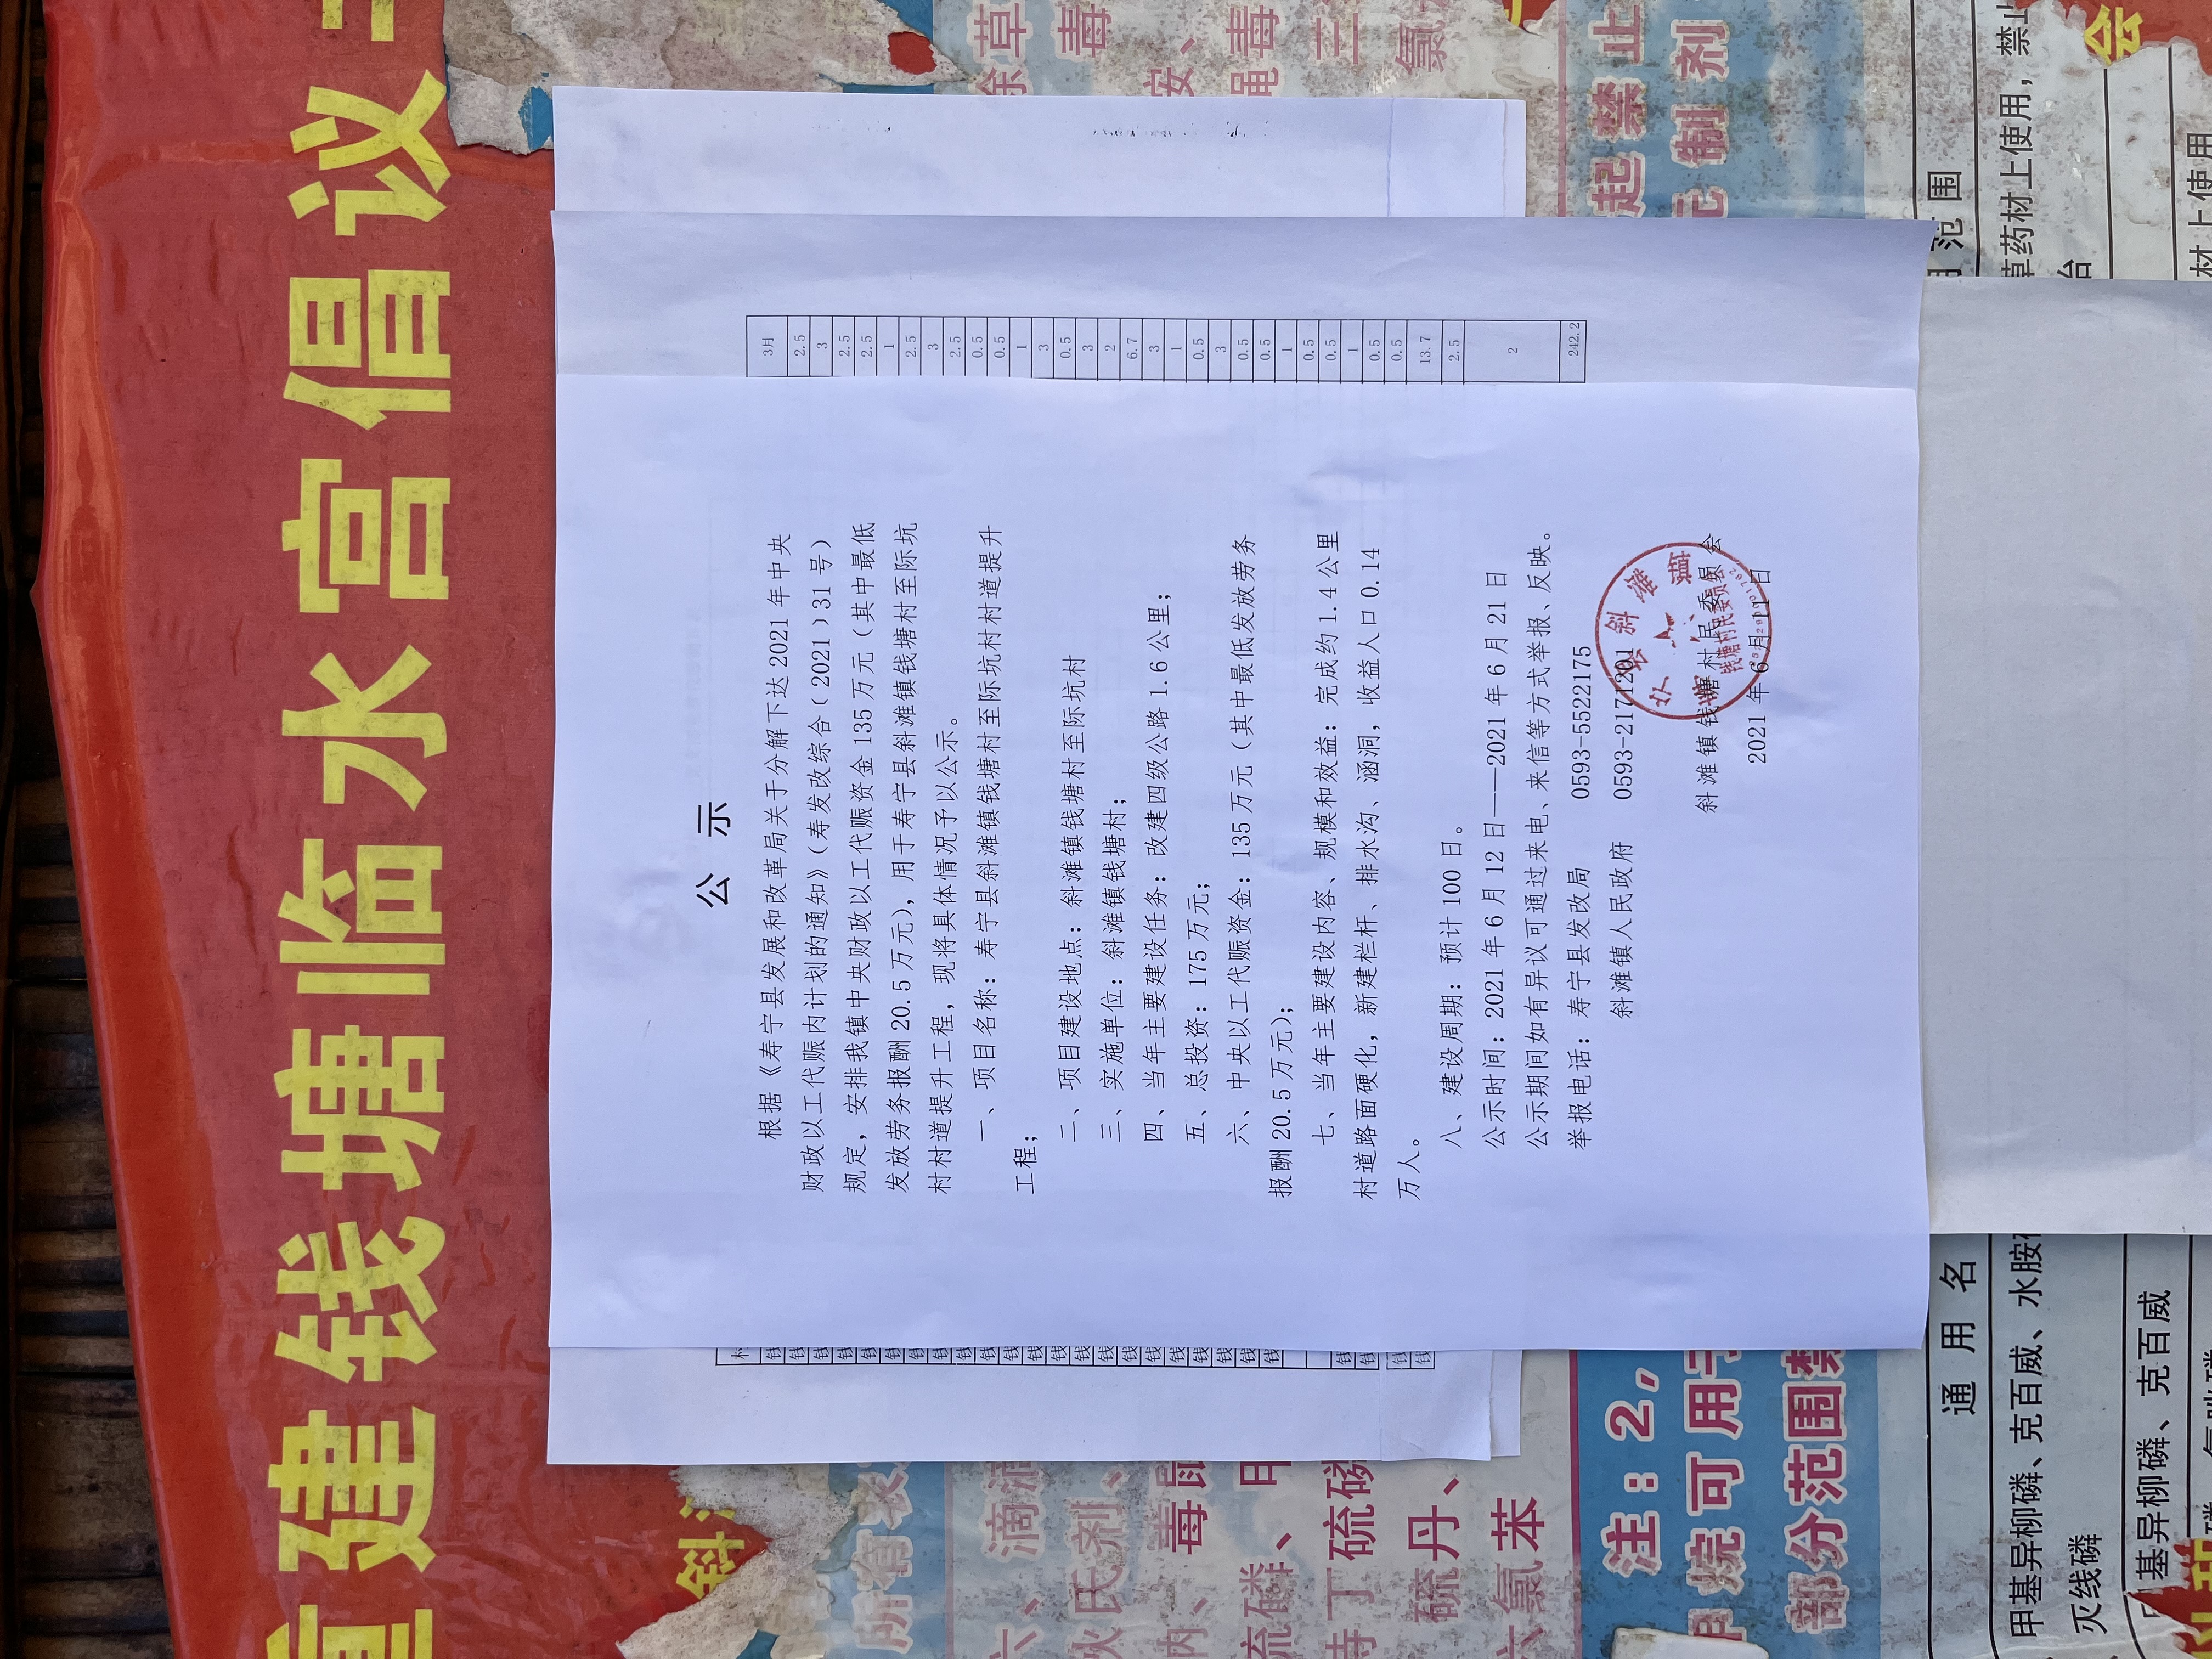 重建钱塘临水宫倡议
公 示
根据《寿宁县发展和改革局关于分解下达 2021 年中央
财政以工代赈内计划的通知》（寿发改综合（2021）31 号）
规定，安排我镇中央财政以工代赈资金 135 万元（其中最低
发放劳务报酬 20.5 万元），用于寿宁县斜滩镇钱塘村至际坑
村村道提升工程，现将具体情况予以公示。
一、项目名称：寿宁县斜滩镇钱塘村至际坑村村道提升
工程；
二、项目建设地点：斜滩镇钱塘村至际坑村
三、实施单位：斜滩镇钱塘村；
四、当年主要建设任务：改建四级公路 1.6 公里；
五、总投资：175 万元；
六、中央以工代赈资金：135 万元（其中最低发放劳务
报酬 20.5 万元）；
七、当年主要建设内容、规模和效益：完成约 1.4 公里
村道路面硬化，新建栏杆、排水沟、涵洞，收益人口 0.14
万人。
八、建设周期：预计 100 日。
公示时间：2021 年 6 月 12 日——2021 年 6 月 21 日
公示期间如有异议可通过来电、来信等方式举报、反映。
举报电话：寿宁县发改局 0593-5522175
斜滩镇人民政府 0593-2171201
斜滩镇钱塘村民委员会
2021 年 6 月 11 日
3月
2.5
3
2.5
2.5
1
2.5
3
2.5
0.5
0.5
1
3
0.5
3
2
6.7
3
1
0.5
3
0.5
0.5
1
0.5
0.5
1
0.5
0.5
13.7
2.5
2
242.2
所有农
六、滴滴
硫丹、
六氯苯
注：2，
甲烷可用于
部分范围禁
起禁止
通 用 名
甲基异柳磷、克百威、水胺
灭线磷
甲基异柳磷、克百威
范围
草药材上使用，禁止
材上使用